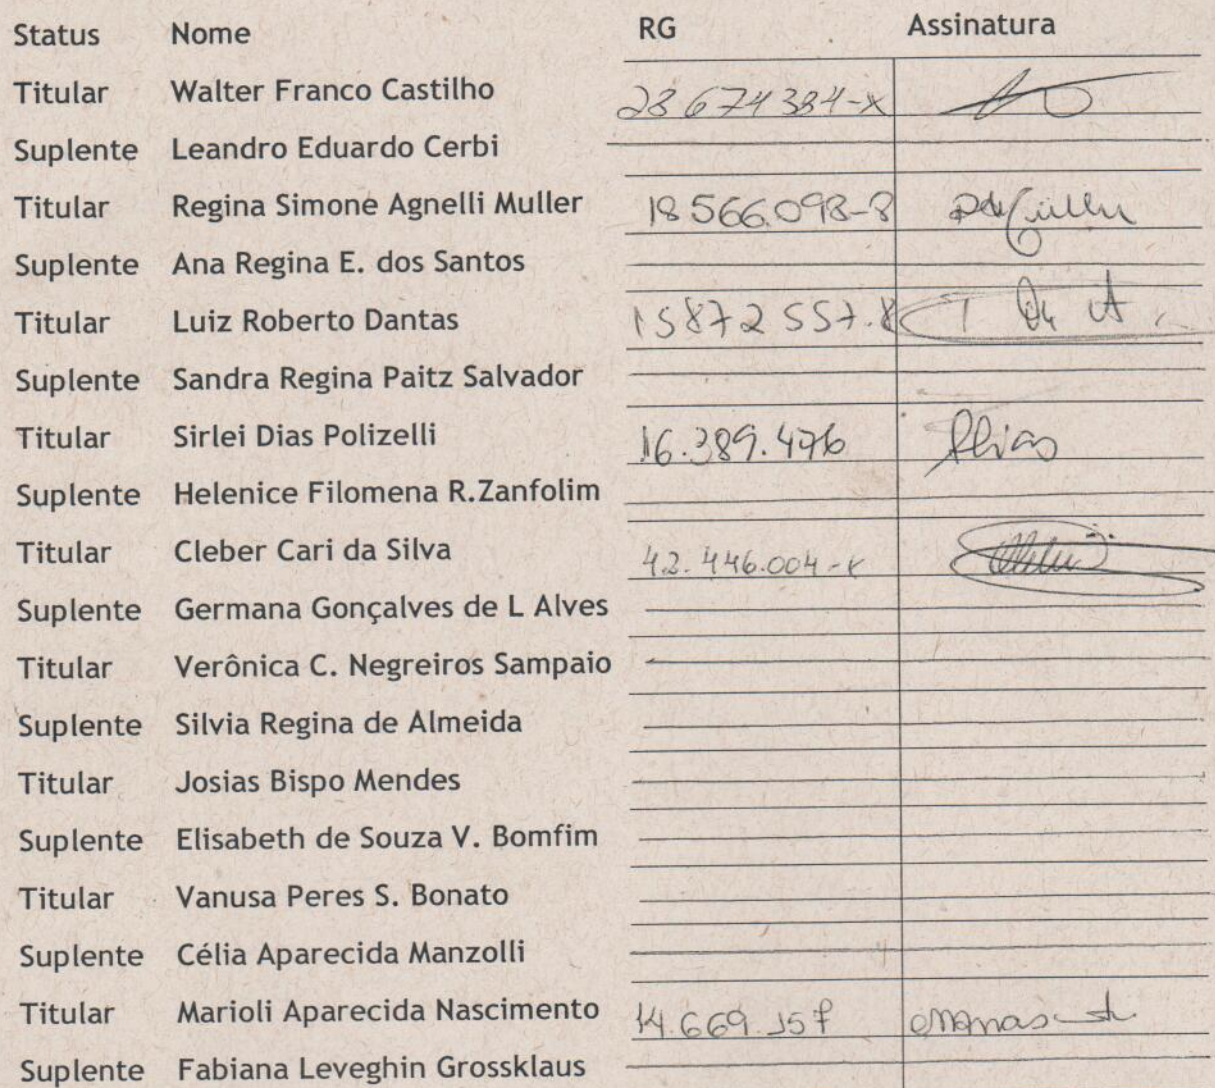 Status Nome RG Assinatura
Titular Walter Franco Castilho 28674384-x
Suplente Leandro Eduardo Cerbi
Titular Regina Simone Agnelli Muller 18566.098-8
Suplente Ana Regina E. dos Santos
Titular Luiz Roberto Dantas 15872557.8
Suplente Sandra Regina Paitz Salvador
Titular Sirlei Dias Polizelli 16.389.476
Suplente Helenice Filomena R.Zanfolim
Titular Cleber Cari da Silva 42.446.004-x
Suplente Germana Gonçalves de L Alves
Titular Verônica C. Negreiros Sampaio
Suplente Silvia Regina de Almeida
Titular Josias Bispo Mendes
Suplente Elisabeth de Souza V. Bomfim
Titular Vanusa Peres S. Bonato
Suplente Célia Aparecida Manzolli
Titular Marioli Aparecida Nascimento
Suplente Fabiana Leveghin Grossklaus